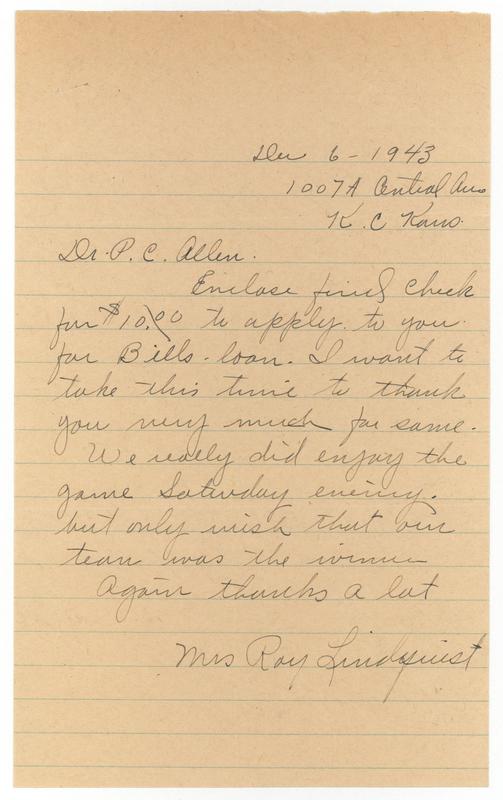 Dec 6 - 1943
1007A Central Ave
K. C. Kans.
Dr. P. C. Allen.
Enclose find check
for $10.00 to apply to you
for Bills loan. I want to
take this time to thank
you very much for same.
We really did enjoy the
game Saturday evening.
but only wish that our
team was the winner
Again thanks a lot
Mrs Roy Lindquist